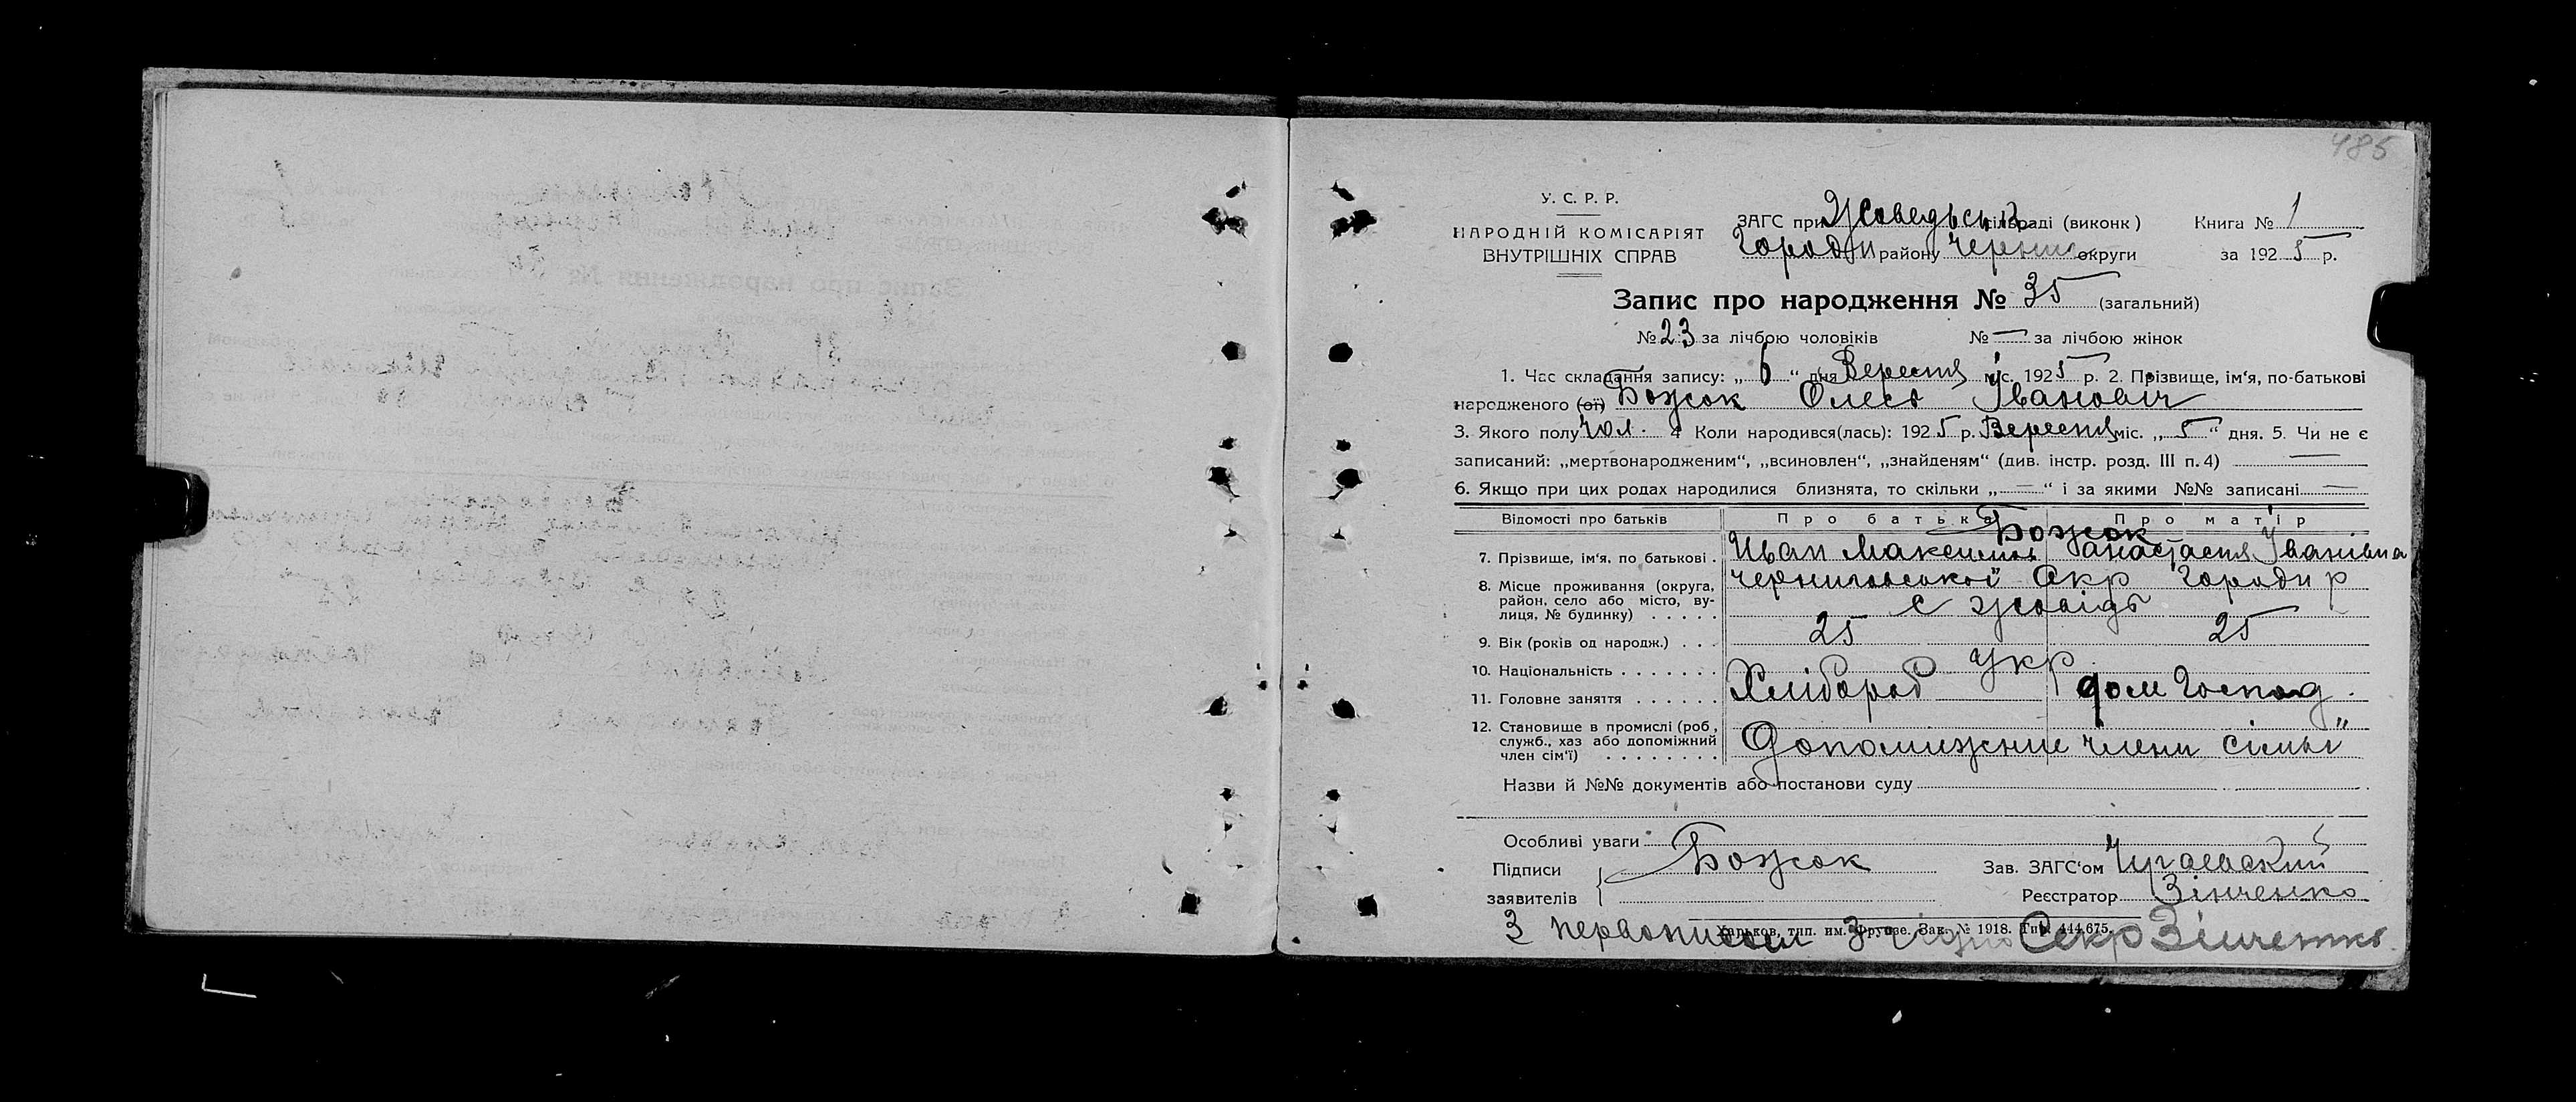 485
У. С. Р. Р.
НАРОДНІЙ КОМІСАРІЯТ
ВНУТРІШНІХ СПРАВ
ЗАГС при Жоведьськ сільраді (виконк)
Городн району Черниг округи
Книга № 1
за 1925 р.
Запис про народження № 35 (загальний)
№ 23 за лічбою чоловіків № — за лічбою жінок
1. Час складання запису: „ 6 “ дня Вересня міс. 1925 р. 2. Прізвище, ім'я, по-батькові
народженого (ої) Божок Олесь Іванович
3. Якого полу чол. 4 Коли народився(лась): 1925 р. Вересня міс. „ 5 “ дня. 5. Чи не є
записаний: „мертвонародженим“, „всиновлен“, „знайденям“ (див. інстр. розд. III п. 4) —
6. Якщо при цих родах народилися близнята, то скільки „ — “ і за якими №№ записані —
Відомості про батьків Про батька Про матір
Божок
7. Прізвище, ім'я, по батькові . Иван Максимов Анастасия Іванівна
8. Місце проживання (округа, район, село або місто, вулиця, № будинку) . . . . . Черниговської Окр Городн р
с Жовідь
9. Вік (років од народж.) . . . 25 25
10. Національність . . . . . . . Укр
11. Головне заняття . . . . . . Хлібороб дом Господ.
12. Становище в промислі (роб, служб., хаз або допоміжний член сім'ї) . . . . . . . . Допомижние члени сімьї
Назви й №№ документів або постанови суду
Особливі уваги
Підписи
заявителів
Божок
Зав. ЗАГС'ом
Реєстратор Зінченко
Харьков, тип. им. Фрунзе. Зак. № 1918. Тир. 444.675.
З первописом згідно Секр Зінченко